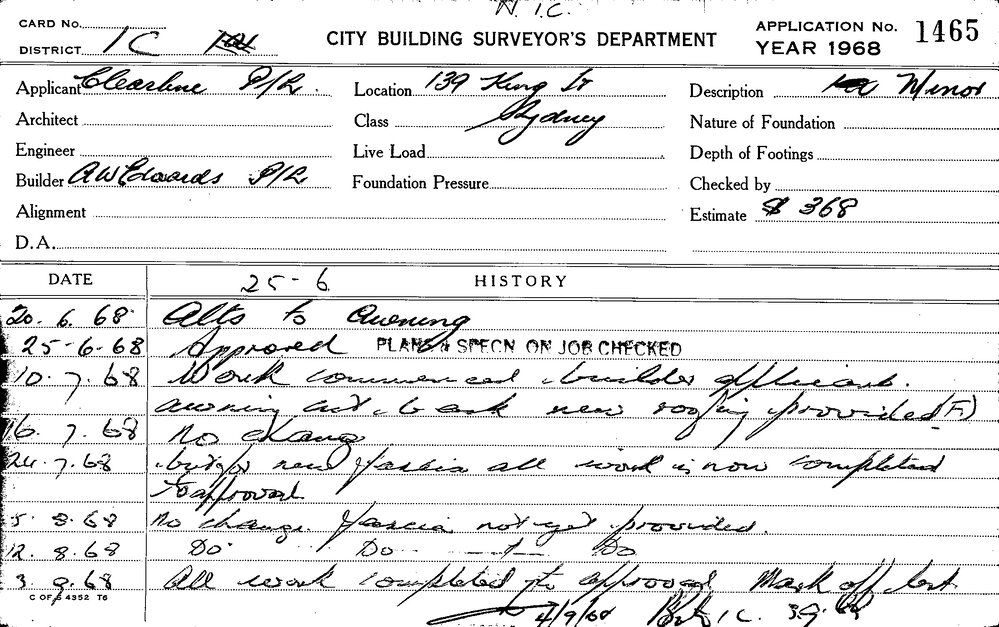 N.I.C.
CARD No.
DISTRICT 1C
CITY BUILDING SURVEYOR'S DEPARTMENT
APPLICATION No. 1465
YEAR 1968
Applicant Clearline P/L.
Location 139 King St
Sydney
Description Minor
Architect
Class
Nature of Foundation
Engineer
Live Load
Depth of Footings
Builder AW Edwards P/L
Foundation Pressure
Checked by
Alignment
Estimate $ 368
D.A.
DATE
25-6
HISTORY
20.6.68 Alts to Awning
25-6-68 Approved PLANS & SPECN ON JOB CHECKED
10.7.68 Work commenced builder applicant.
awning cut back new roofing provided (F)
16.7.68 No change
24.7.68 but for new fascia all work is now completed
to approval
5.8.68 No change. fascia not yet provided.
12.8.68 Do Do Do
3.9.68 All work completed to approval Mark off
C OF S 4352 T6
4/9/68 1C 3.9.68